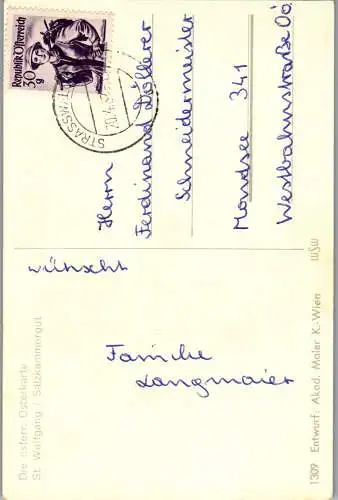 Die österr. Osterkarte
St. Wolfgang / Salzkammergut
wünscht
Familie
Langmaier
Republik Österreich
30 g
STRASSWAL
20.4.
Herrn
Ferdinand Döllerer
Schneidermeister
Mondsee 341
Westbahnstraße OÖ
1309 Entwurf: Akad. Maler K.-Wien
WSW